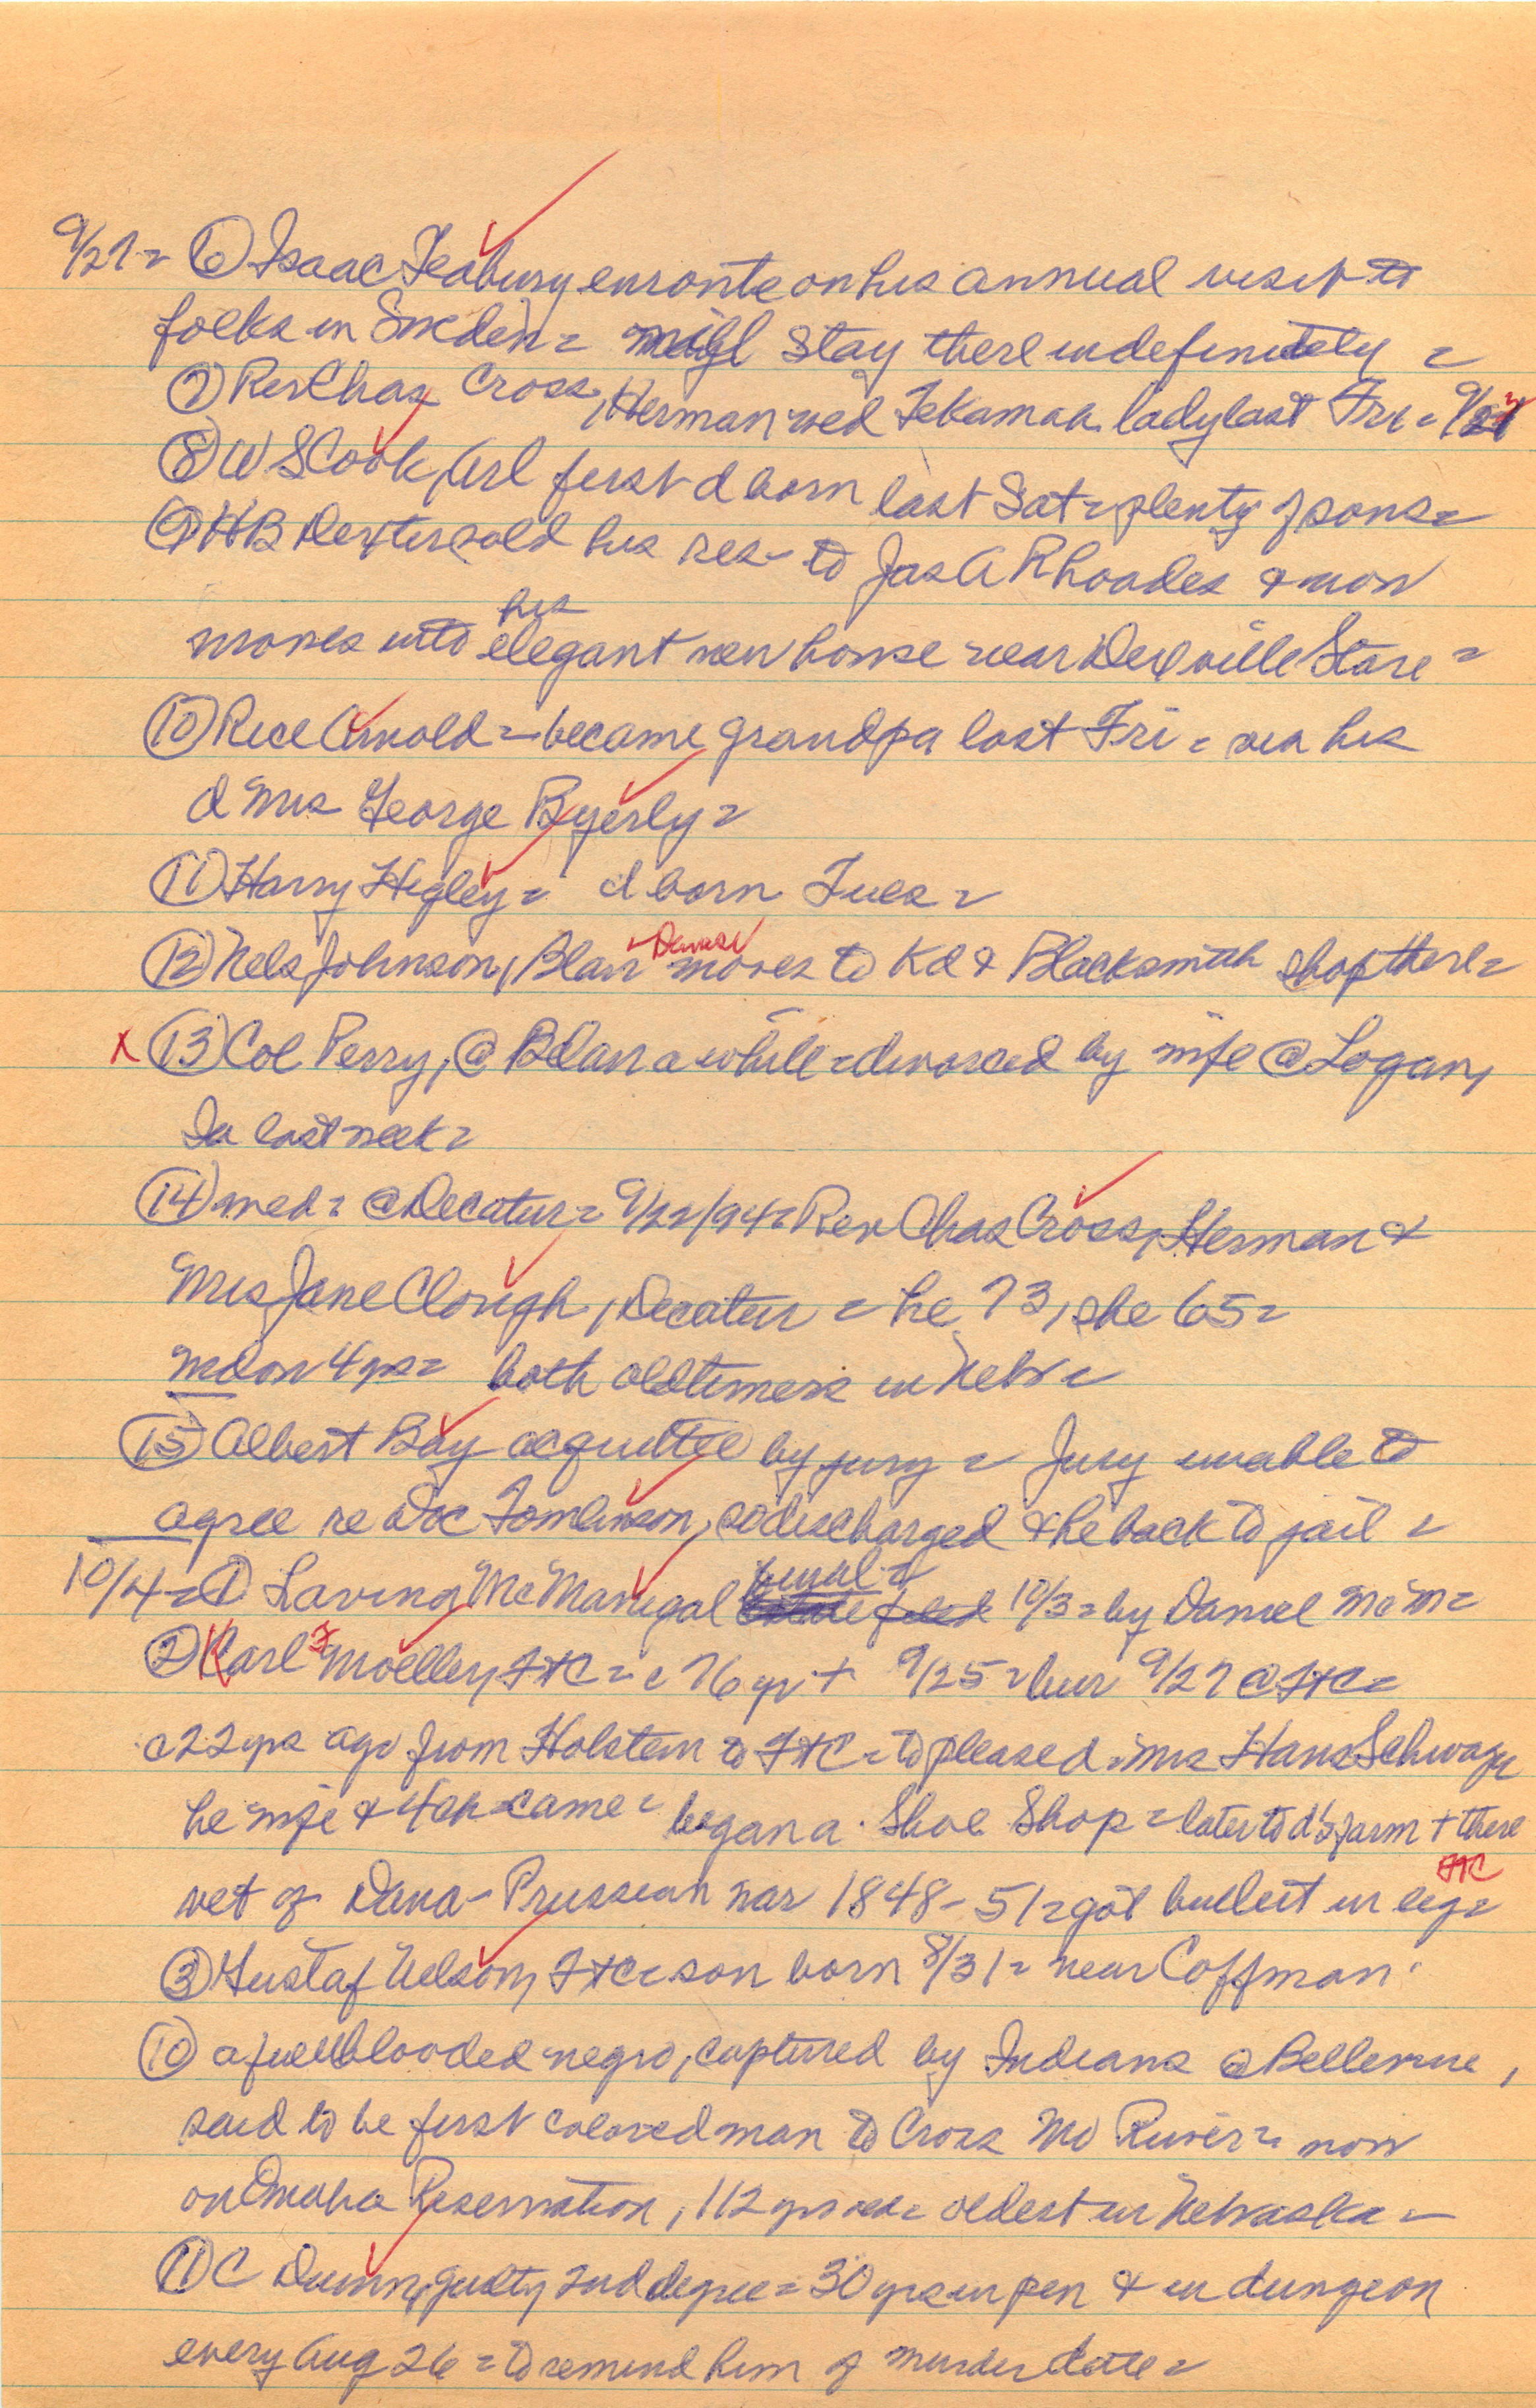 9/27 = ⑥ Isaac Seabury enroute on his annual visit to
folks in Sweden = might stay there indefinitely =
⑦ Rev Chas Cross, Herman wed Tekamah lady last Fri = 9/21
⑧ W S Cook, Arl first d born last Sat = plenty of sons =
⑨ H B Dexter sold his res - to Jas A Rhoades & now
his
moves into elegant new house near Dexville Store =
⑩ Rice Arnold = became grandpa last Fri = via his
d Mrs George Byerly =
⑪ Harry Higley = d born Tues =
⑫ Nels Johnson, Blair moves to Kd & Blacksmith shop there =
x ⑬ Col Perry, @ Blair a while = divorced by wife @ Logan,
Ia last week =
⑭ wed = @ Decatur = 9/22/94 = Rev Chas Cross, Herman &
Mrs Jane Clough, Decatur = he 73, she 65 =
both oldtimers in Nebr =
⑮ Albert Bay acquitted by jury = Jury unable to
agree re Doc Tomlinson, so discharged & he back to jail =
10/4 = ① Lavina McManigal 10/3 = by Daniel McM =
② Karl F Moeller, FtC = c 76 yr + 9/25 = bur 9/27 @ FtC =
c 22 yrs ago from Holstein to FtC = to please d = Mrs Hans Schwager
he wife & 4 ch came = began a Shoe Shop = later to d's farm + there
FtC
vet of Dano - Prussian war 1848 - 51 = got bullet in leg =
③ Gustaf Nelson, FtC = son born 8/31 = near Coffman
⑩ a fullblooded negro, captured by Indians @ Bellevue,
said to be first colored man to Cross Mo River = now
on Omaha Reservation, 112 yrs old = oldest in Nebraska =
⑪ C Dunn, guilty 2nd degree = 30 yrs in pen & in dungeon
every Aug 26 = to remind him of murder date =